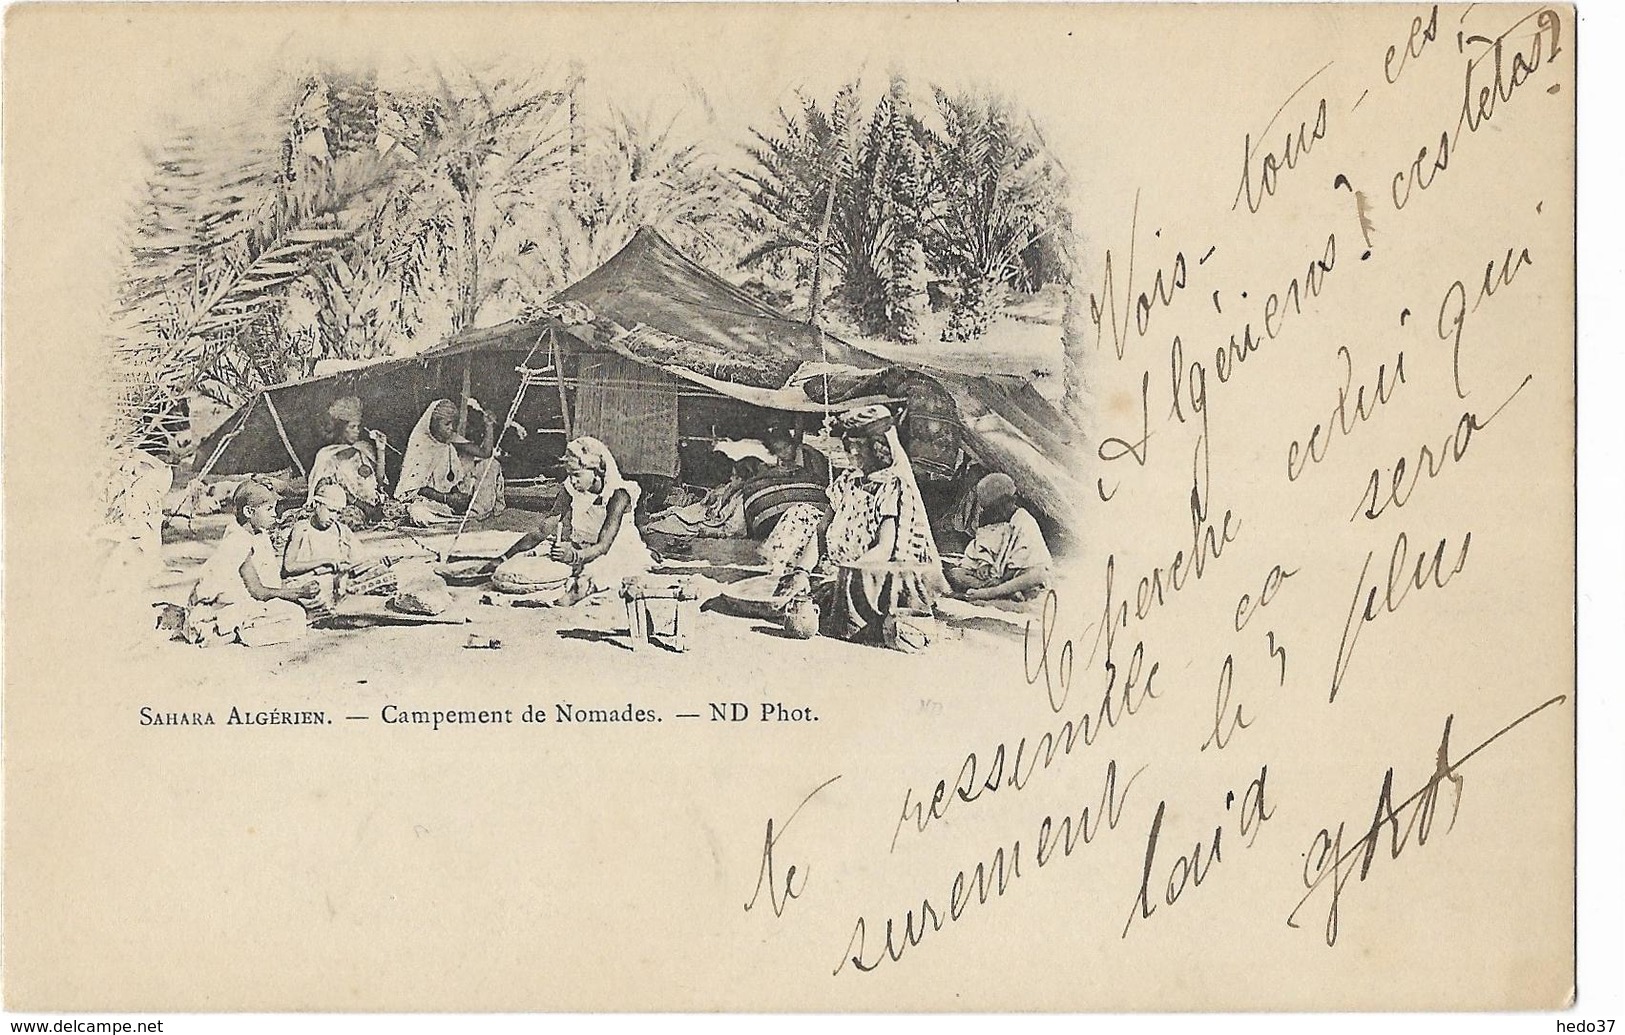 SAHARA ALGÉRIEN. — Campement de Nomades. — ND Phot.
Vois-tous-ces
Algériens! ces têtes?
Cherche celui qui
te ressemble ça sera
surement le plus
laid
www.delcampe.net
hedo37